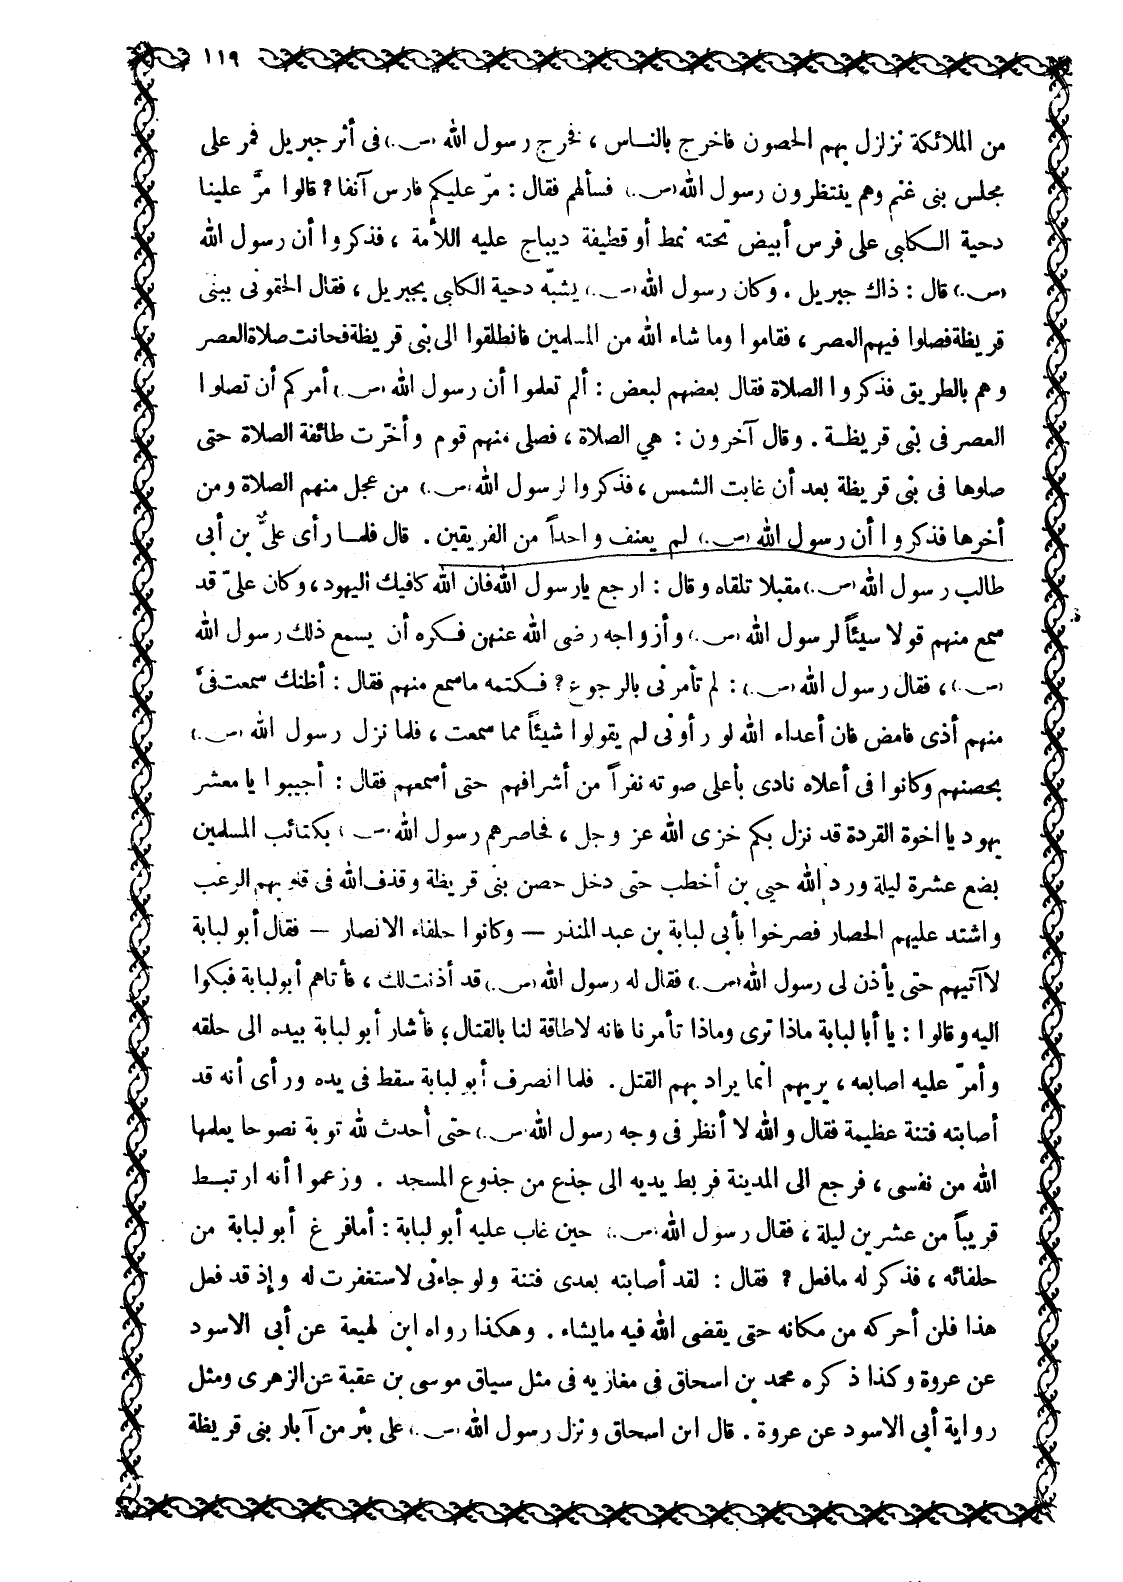 ١١٩
من الملائكة نزلزل بهم الحصون فاخرج بالناس ، فخرج رسول الله (ص.) فى أثر جبريل فمر على
مجلس بنى غنم وهم ينتظرون رسول الله (ص.) فسألهم فقال : مرّ عليكم فارس آنفا ؟ قالوا مرَّ علينا
دحية الكلبى على فرس أبيض تحته نمط أو قطيفة ديباج عليه اللأمة ، فذكروا أن رسول الله
(ص.) قال : ذاك جبريل . وكان رسول الله (ص.) يشبّه دحية الكلبى بجبريل ، فقال الحقونى ببنى
قريظة فصلوا فيهم العصر ، فقاموا وما شاء الله من المسلمين فانطلقوا الى بنى قريظة فحانت صلاة العصر
وهم بالطريق فذكروا الصلاة فقال بعضهم لبعض : ألم تعلموا أن رسول الله (ص.) أمركم أن تصلوا
العصر فى بنى قريظة . وقال آخرون : هي الصلاة ، فصلى منهم قوم وأخّرت طائفة الصلاة حتى
صلوها فى بنى قريظة بعد أن غابت الشمس ، فذكروا لرسول الله (ص.) من عجل منهم الصلاة ومن
أخرها فذكروا أن رسول الله (ص.) لم يعنف واحداً من الفريقين . قال فلما رأى علىّ بن أبى
طالب رسول الله (ص.) مقبلا تلقاه وقال : ارجع يارسول الله فان الله كافيك اليهود ، وكان علىّ قد
سمع منهم قولا سيئاً لرسول الله (ص.) وأزواجه رضى الله عنهن فكره أن يسمع ذلك رسول الله
(ص.) ، فقال رسول الله (ص.) : لم تأمرنى بالرجوع ؟ فكتمه ماسمع منهم فقال : أظنك سمعت فىَّ
منهم أذى فامض فان أعداء الله لو رأونى لم يقولوا شيئاً مما سمعت ، فلما نزل رسول الله (ص.)
بحصنهم وكانوا فى أعلاه نادى بأعلى صوته نفراً من أشرافهم حتى أسمعهم فقال : أجيبوا يا معشر
يهود يا اخوة القردة قد نزل بكم خزى الله عز وجل ، فحاصرهم رسول الله (ص.) بكتائب المسلمين
بضع عشرة ليلة ورد الله حيى بن أخطب حتى دخل حصن بنى قريظة وقذف الله فى قلوبهم الرعب
واشتد عليهم الحصار فصرخوا بأبى لبابة بن عبد المنذر — وكانوا حلفاء الانصار — فقال أبو لبابة
لا آتيهم حتى يأذن لى رسول الله (ص.) فقال له رسول الله (ص.) قد أذنت لك ، فأتاهم أبو لبابة فبكوا
اليه وقالوا : يا أبا لبابة ماذا ترى وماذا تأمرنا فانه لاطاقة لنا بالقتال ؛ فأشار أبو لبابة بيده الى حلقه
وأمرّ عليه اصابعه ، يريهم انما يراد بهم القتل . فلما انصرف أبو لبابة سقط فى يده ورأى أنه قد
أصابته فتنة عظيمة فقال والله لا أنظر فى وجه رسول الله (ص.) حتى أحدث لله توبة نصوحا يعلمها
الله من نفسى ، فرجع الى المدينة فربط يديه الى جذع من جذوع المسجد . وزعموا أنه ارتبط
قريباً من عشرين ليلة ، فقال رسول الله (ص.) حين غاب عليه أبو لبابة : أمافرغ أبو لبابة من
حلفائه ، فذكر له مافعل ؟ فقال : لقد أصابته بعدى فتنة ولو جاءنى لاستغفرت له وإذ قد فعل
هذا فلن أحركه من مكانه حتى يقضى الله فيه مايشاء . وهكذا رواه ابن لهيعة عن أبى الاسود
عن عروة وكذا ذكره محمد بن اسحاق فى مغازيه فى مثل سياق موسى بن عقبة عن الزهرى ومثل
رواية أبى الاسود عن عروة . قال ابن اسحاق ونزل رسول الله (ص.) على بئر من آبار بنى قريظة